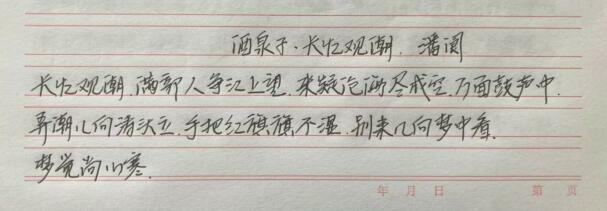 酒泉子·长忆观潮.潘阆
长忆观潮.满郭人争江上望.来疑沧海尽成空.万面鼓声中.
弄潮儿向涛头立.手把红旗旗不湿.别来几向梦中看.
梦觉尚心寒.
年 月 日 第 页